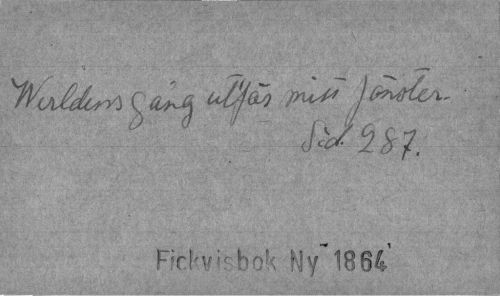 Werldens gång utför mitt fönster.
Sid. 287.
Fickvisbok Ny 1864